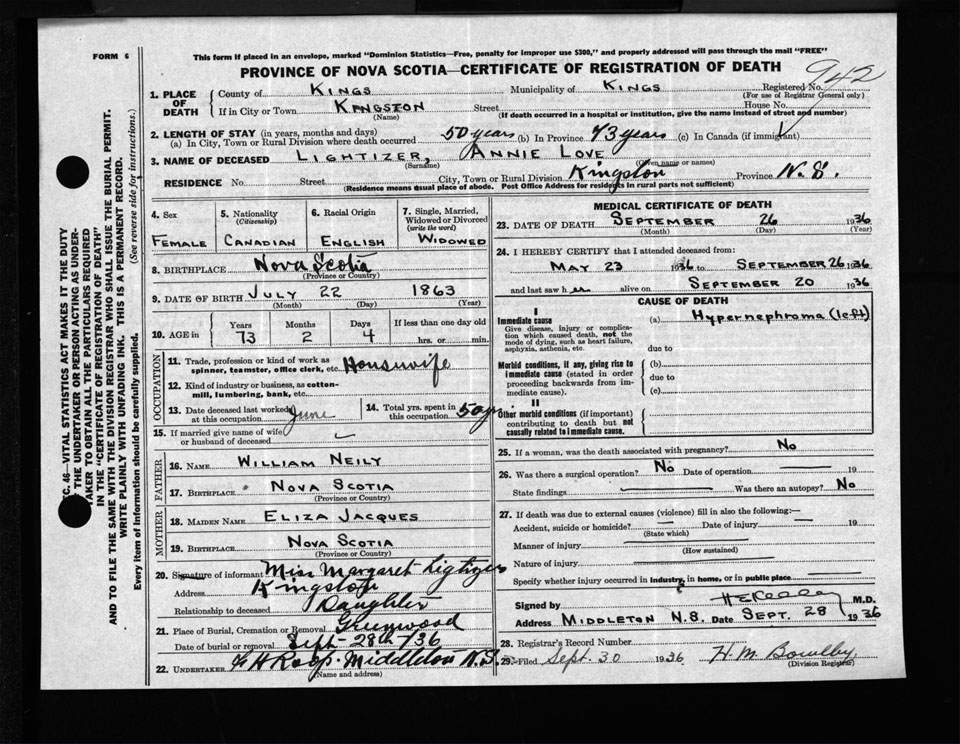 FORM 6
This form if placed in an envelope, marked "Dominion Statistics—Free, penalty for improper use $300," and properly addressed will pass through the mail "FREE"
PROVINCE OF NOVA SCOTIA—CERTIFICATE OF REGISTRATION OF DEATH
942
1. PLACE OF DEATH
County of KINGS Municipality of KINGS Registered No.
(For use of Registrar General only)
If in City or Town KINGSTON Street House No.
(Name) (If death occurred in a hospital or institution, give the name instead of street and number)
2. LENGTH OF STAY (in years, months and days)
(a) In City, Town or Rural Division where death occurred 50 years (b) In Province 73 years (c) In Canada (if immigrant)
3. NAME OF DECEASED LIGHTIZER, ANNIE LOVE
(Surname) (Given name or names)
RESIDENCE No. Street City, Town or Rural Division Kingston Province N.S.
(Residence means usual place of abode. Post Office Address for residents in rural parts not sufficient)
4. Sex
FEMALE
5. Nationality
(Citizenship)
CANADIAN
6. Racial Origin
ENGLISH
7. Single, Married, Widowed or Divorced
(write the word)
WIDOWED
8. BIRTHPLACE Nova Scotia
(Province or Country)
9. DATE OF BIRTH JULY 22 1863
(Month) (Day) (Year)
10. AGE in
Years Months Days If less than one day old
73 2 4 hrs. or min.
OCCUPATION
11. Trade, profession or kind of work as spinner, teamster, office clerk, etc. Housewife
12. Kind of industry or business, as cotton-mill, lumbering, bank, etc.
13. Date deceased last worked at this occupation June
14. Total yrs. spent in this occupation 50 yr.
15. If married give name of wife or husband of deceased
FATHER
16. NAME WILLIAM NEILY
17. BIRTHPLACE NOVA SCOTIA
(Province or Country)
MOTHER
18. MAIDEN NAME ELIZA JACQUES
19. BIRTHPLACE NOVA SCOTIA
(Province or Country)
20. Signature of informant Miss Margaret Ligtizer
Address Kingston
Relationship to deceased Daughter
21. Place of Burial, Cremation or Removal Greenwood
Date of burial or removal Sept. 28th /36
22. UNDERTAKER Roop. Middleton N.S.
(Name and address)
MEDICAL CERTIFICATE OF DEATH
23. DATE OF DEATH SEPTEMBER 26 1936
(Month) (Day) (Year)
24. I HEREBY CERTIFY that I attended deceased from:
MAY 23 1936 to SEPTEMBER 26 1936
and last saw her alive on SEPTEMBER 20 1936
CAUSE OF DEATH
I
Immediate cause
Give disease, injury or complication which caused death, not the mode of dying, such as heart failure, asphyxia, asthenia, etc.
(a) Hypernephroma (left)
due to
Morbid conditions, if any, giving rise to immediate cause (stated in order proceeding backwards from immediate cause).
(b)
due to
(c)
II
Other morbid conditions (if important) contributing to death but not causally related to immediate cause.
25. If a woman, was the death associated with pregnancy? No
26. Was there a surgical operation? No Date of operation 19
State findings Was there an autopsy? No
27. If death was due to external causes (violence) fill in also the following:—
Accident, suicide or homicide? Date of injury 19
(State which)
Manner of injury
(How sustained)
Nature of injury
Specify whether injury occurred in industry, in home, or in public place
Signed by M.D.
Address MIDDLETON N.S. Date SEPT. 28 1936
28. Registrar's Record Number
29. Filed Sept. 30 1936 H. M. Bowlby
(Division Registrar)
SEC. 46—VITAL STATISTICS ACT MAKES IT THE DUTY
OF THE UNDERTAKER OR PERSON ACTING AS UNDER-
TAKER TO OBTAIN ALL THE PARTICULARS REQUIRED
IN THE "CERTIFICATE OF REGISTRATION OF DEATH"
AND TO FILE THE SAME WITH THE DIVISION REGISTRAR WHO SHALL ISSUE THE BURIAL PERMIT.
WRITE PLAINLY WITH UNFADING INK. THIS IS A PERMANENT RECORD.
Every item of information should be carefully supplied. (See reverse side for instructions.)